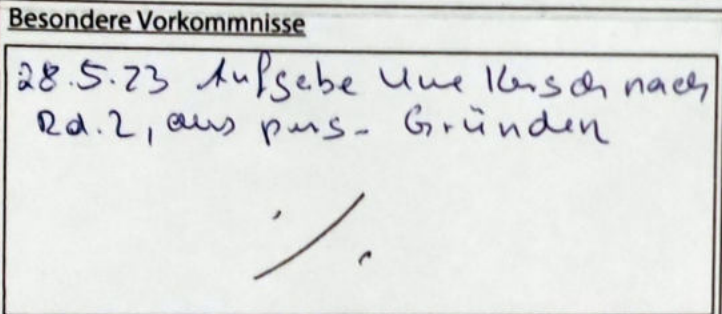 Besondere Vorkommnisse
28.5.23 Aufgabe Uwe Kersch nach
Rd. 2, aus pers. Gründen
·/.